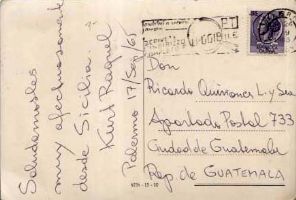 Saludamoslos
muy afectuosamente
desde Sicilia
Kurt Raquel
Palermo 17/Sep/65
Don
Ricardo Quiñonez L. y Sra
Apartado Postal 733
Ciudad de Guatemala
Rep de GUATEMALA